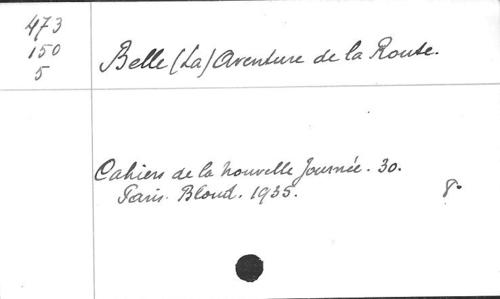 473
150
5
Belle (La) Aventure de la Route.
Cahiers de la nouvelle Journée. 30.
Paris. Bloud. 1935.
8°